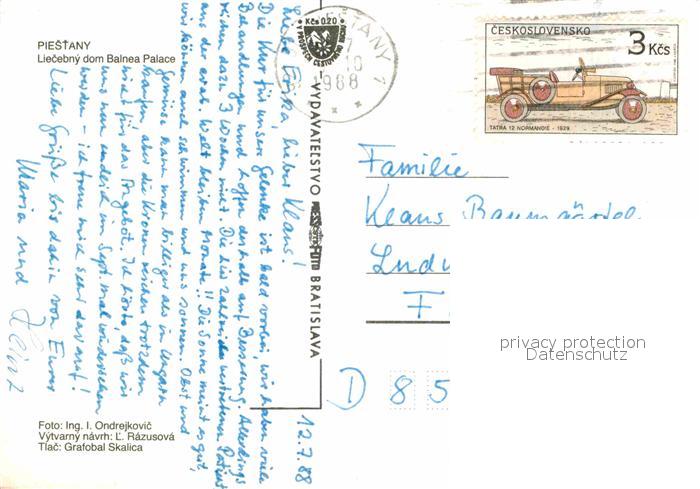 PIEŠŤANY
Liečebný dom Balnea Palace
Kčs 0,20
V PROSPECH CESTOVNÉHO RUCHU
PIEŠŤANY 1
1988
ČESKOSLOVENSKO
3 Kčs
TATRA 12 NORMANDIE - 1929
VYDAVATEĽSTVO
BRATISLAVA
12.7.88
Liebe Erika, lieber Klaus!
Die Kur für unsere Gelenke ist bald vorbei, wir haben viele
Behandlungen und hoffen deshalb auf Besserung. Allerdings
reichen dazu 3 Wochen nicht. Die hier zahlreichen vertretenen Patienten
aus der arab. Welt bleiben Monate!! Die Sonne meint es gut,
wir können auch schwimmen und uns sonnen. Obst und
Gemüse kann man billiger als in Ungarn
kaufen, aber die Kronen reichen trotzdem
nicht für das Angebot. Ich hörte, daß wir
uns nun endlich im Sept. mal wiedersehen
werden - ich freue mich sehr darauf!
Liebe Grüße bis dahin von Eurer
Maria und Heinz
Familie
Klaus
D 85
Foto: Ing. I. Ondrejkovič
Výtvarný návrh: Ľ. Rázusová
Tlač: Grafobal Skalica
privacy protection
Datenschutz